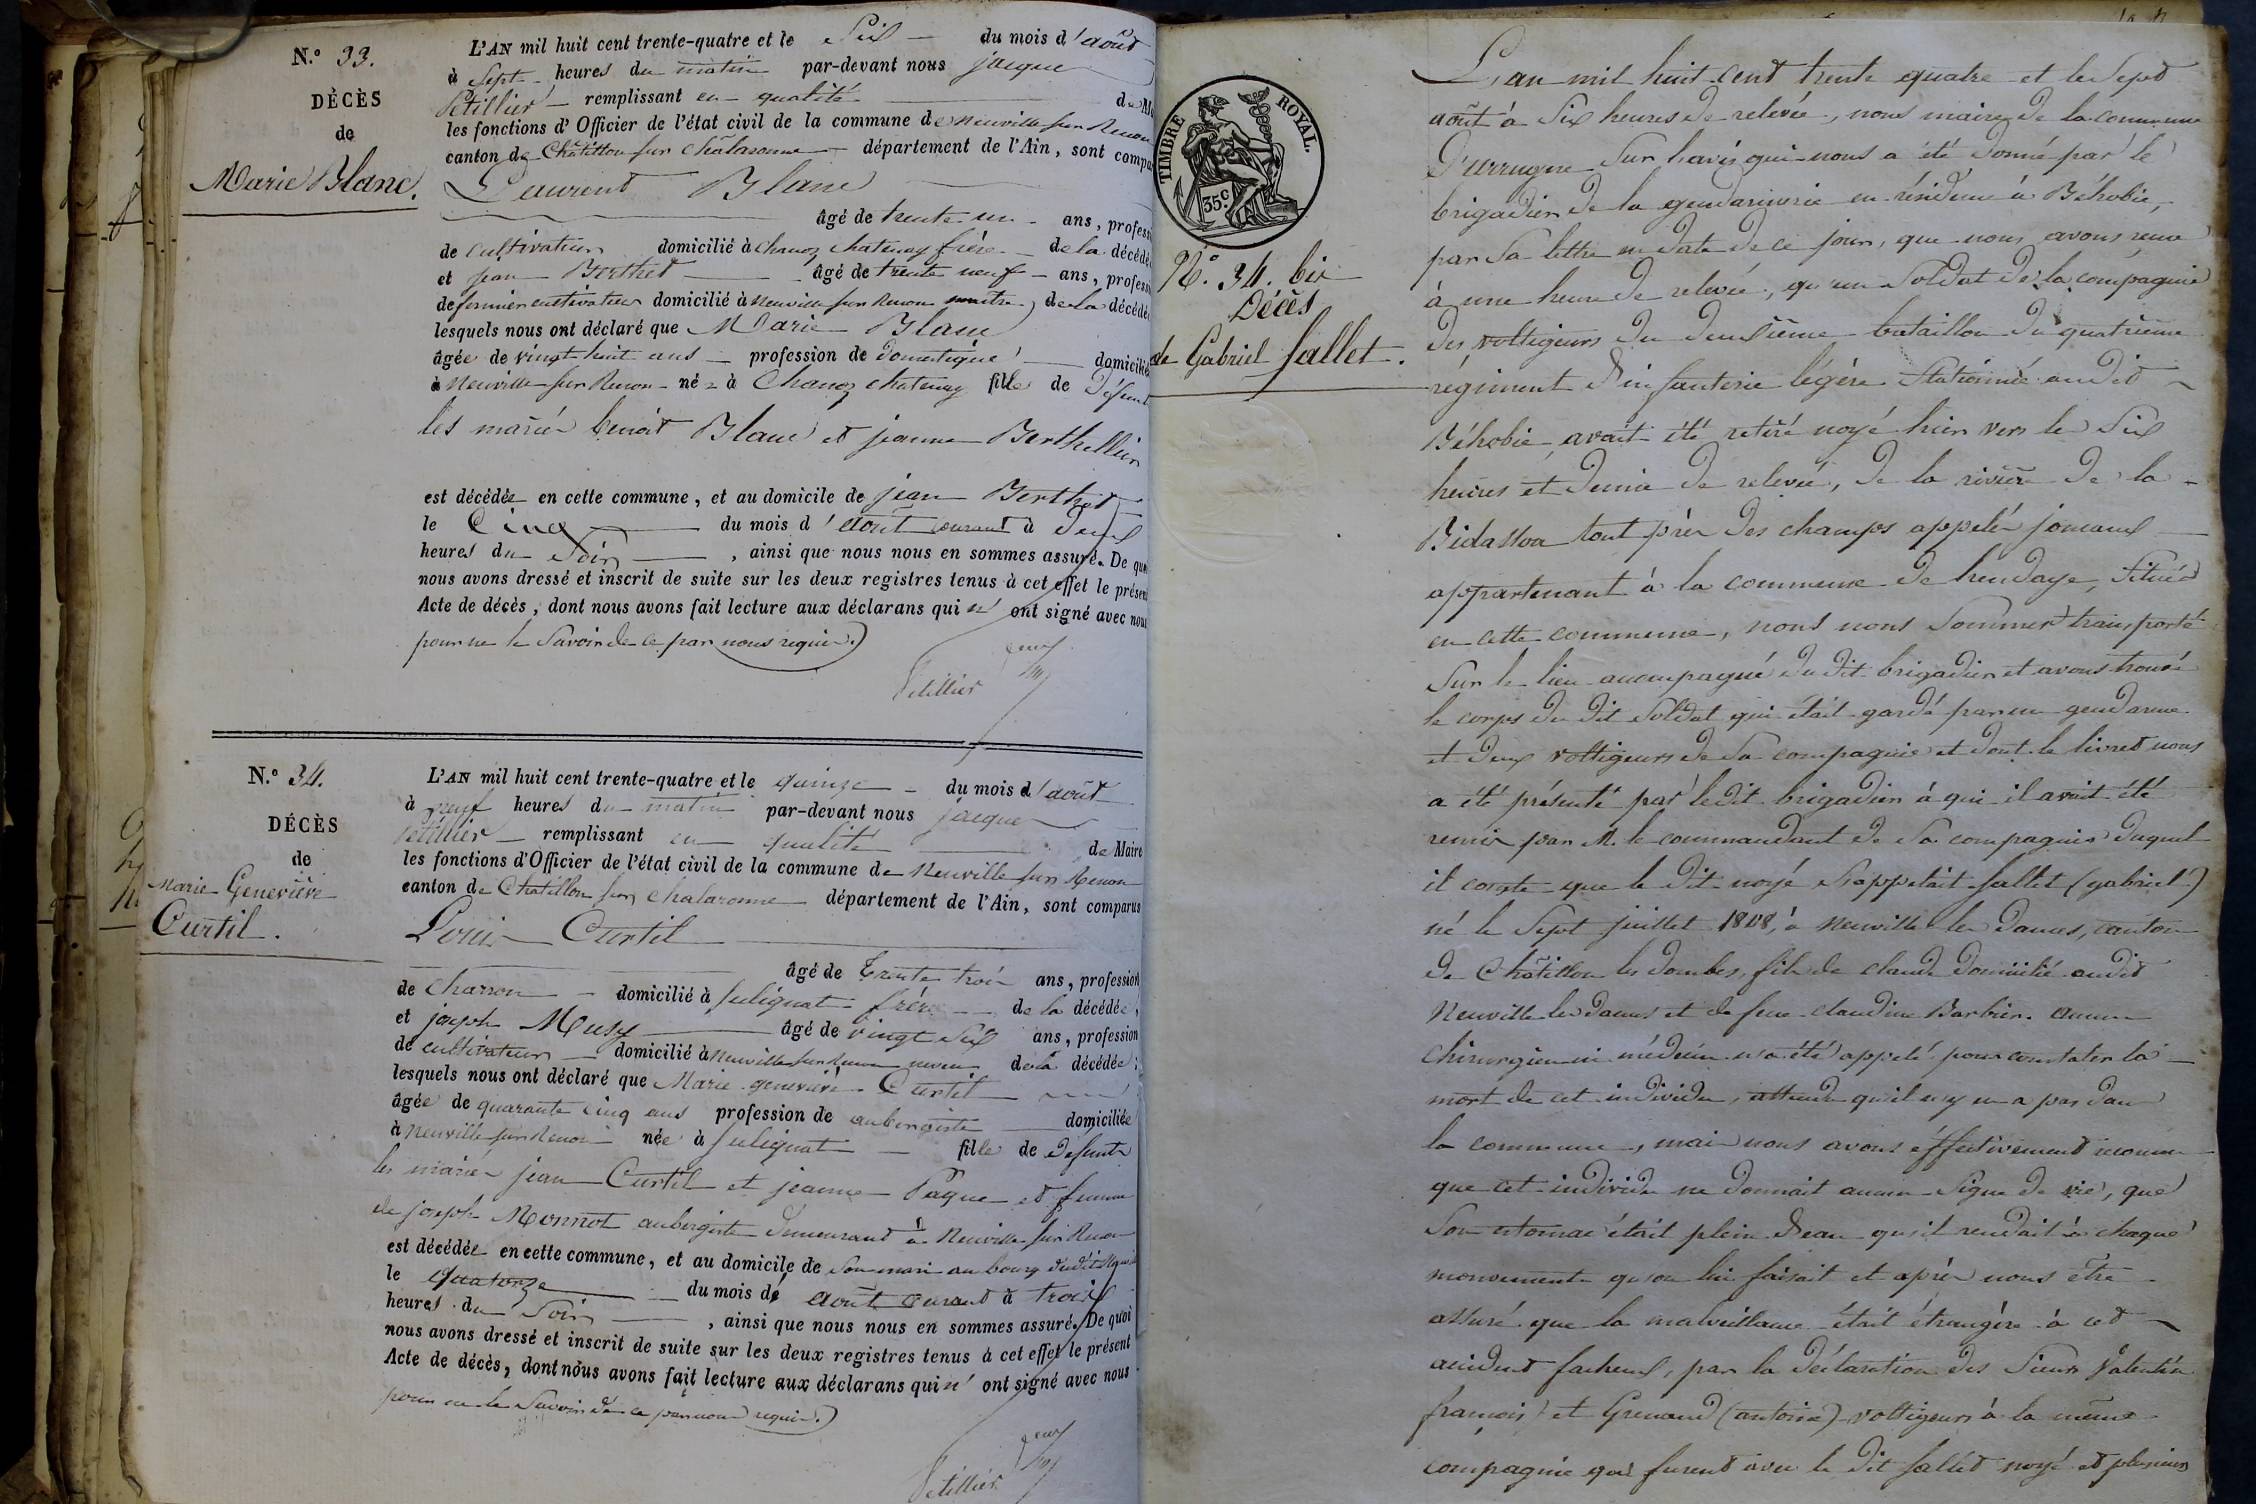 N.º 33.
DÉCÈS
de
Marie Blanc.
L'AN mil huit cent trente-quatre et le Six du mois d'août
à Sept heures du matin par-devant nous jacque
Petillier remplissant en qualité de Ma
les fonctions d'Officier de l'état civil de la commune de Neuville sur Renom
canton de Châtillon sur Chalaronne département de l'Ain, sont compa
Laurent Blanc
âgé de trente un ans, profess
de cultivateur domicilié à chanoz chatenay frère de la décédé
et jean Berthet âgé de trente neuf ans, profess
de fermier cultivateur domicilié à Neuville sur Renom maitre de la décédé
lesquels nous ont déclaré que Marie Blanc
âgée de vingt huit ans profession de Domestique domicilié
à Neuville sur Renom né à Chanoz chatenay fille de Défunt
les mariés benoit Blanc et jeanne Berthellier
est décédée en cette commune, et au domicile de jean Berthet
le Cinq du mois d'août courant à Deux
heures du Soir, ainsi que nous nous en sommes assuré. De quo
nous avons dressé et inscrit de suite sur les deux registres tenus à cet effet le présen
Acte de décès, dont nous avons fait lecture aux déclarans qui n'ont signé avec nous
pour ne le Savoir de ce par nous requis.
Petillier
N.º 34.
DÉCÈS
de
Marie Geneviève
Curtil.
L'AN mil huit cent trente-quatre et le quinze du mois d'août
à neuf heures du matin par-devant nous jacque
Petillier remplissant en qualité de Maire
les fonctions d'Officier de l'état civil de la commune de Neuville sur Renom
canton de Chatillon sur chalaronne département de l'Ain, sont comparus
Louis Curtil
âgé de trente trois ans, profession
de charron domicilié à Sulignat frère de la décédée,
et joseph Musy âgé de vingt Six ans, profession
de cultivateur domicilié à Neuville sur Renom neveu de la décédée;
lesquels nous ont déclaré que Marie genevieve Curtil
âgée de quarante cinq ans profession de aubergiste domiciliée
à Neuville sur Renom née à Sulignat fille de Defunts
les mariés jean Curtil et jeanne Pâque et femme
de joseph Monnot aubergiste demeurant à Neuville sur Renom
est décédée en cette commune, et au domicile de Son mari au bourg dudit
le quatorze du mois d'août courant à trois
heures du Soir, ainsi que nous nous en sommes assuré. De quoi
nous avons dressé et inscrit de suite sur les deux registres tenus à cet effet le présent
Acte de décès, dont nous avons fait lecture aux déclarans qui n'ont signé avec nous
pour ne le Savoir de ce par nous requis.
Petillier
TIMBRE ROYAL.
35 c.
Nº. 34. bis
Décès
de Gabriel Sallet.
L'an mil huit cent trente quatre et le Sept
août à Six heures de relevée, nous maire de la commune
D'urrugne Sur l'avis qui nous a été donné par le
brigadier de la gendarmerie en résidence à Béhobie,
par Sa lettre en date de ce jour, que nous avons reçue
à une heure de relevée, qu'un Soldat de la compagnie
des voltigeurs du deuxième bataillon du quatrième
régiment d'infanterie légère Stationné audit
Béhobie, avait été retiré noyé hier vers les Six
heures et demie de relevée, de la rivière de la
Bidassoa tout près des champs appelés joncaux
appartenant à la commune de hendaye, Situés
en cette commune, nous nous Sommes transporté
Sur le lieu accompagné du dit brigadier et avons trouvé
le corps du dit Soldat qui était gardé par un gendarme
et deux voltigeurs de Sa compagnie et dont le livret nous
a été présenté par ledit brigadier à qui il avait été
remis par M. le commandant de Sa compagnie duquel
il conste que le dit noyé S'appelait Sallet (gabriel)
né le Sept juillet 1808, à Neuville les Dames, canton
de Châtillon les dombes, fils de claude Domicilié audit
Neuville les Dames et de feue claudine Barbier. aucun
chirurgien ni médecin n'a été appelé pour constater la
mort de cet individu, attendu qu'il n'y en a pas dans
la commune, mais nous avons effectivement reconnu
que cet individu ne donnait aucun Signe de vie, que
Son estomac était plein d'eau qu'il rendait à chaque
mouvement qu'on lui faisait et après nous être
assuré que la malveillance était étrangère à cet
accident facheux, par la déclaration des Sieurs Valentin
françois et Grenaud (antoine) voltigeurs à la même
compagnie qui furent avec le dit Sallet noyé et plusieurs